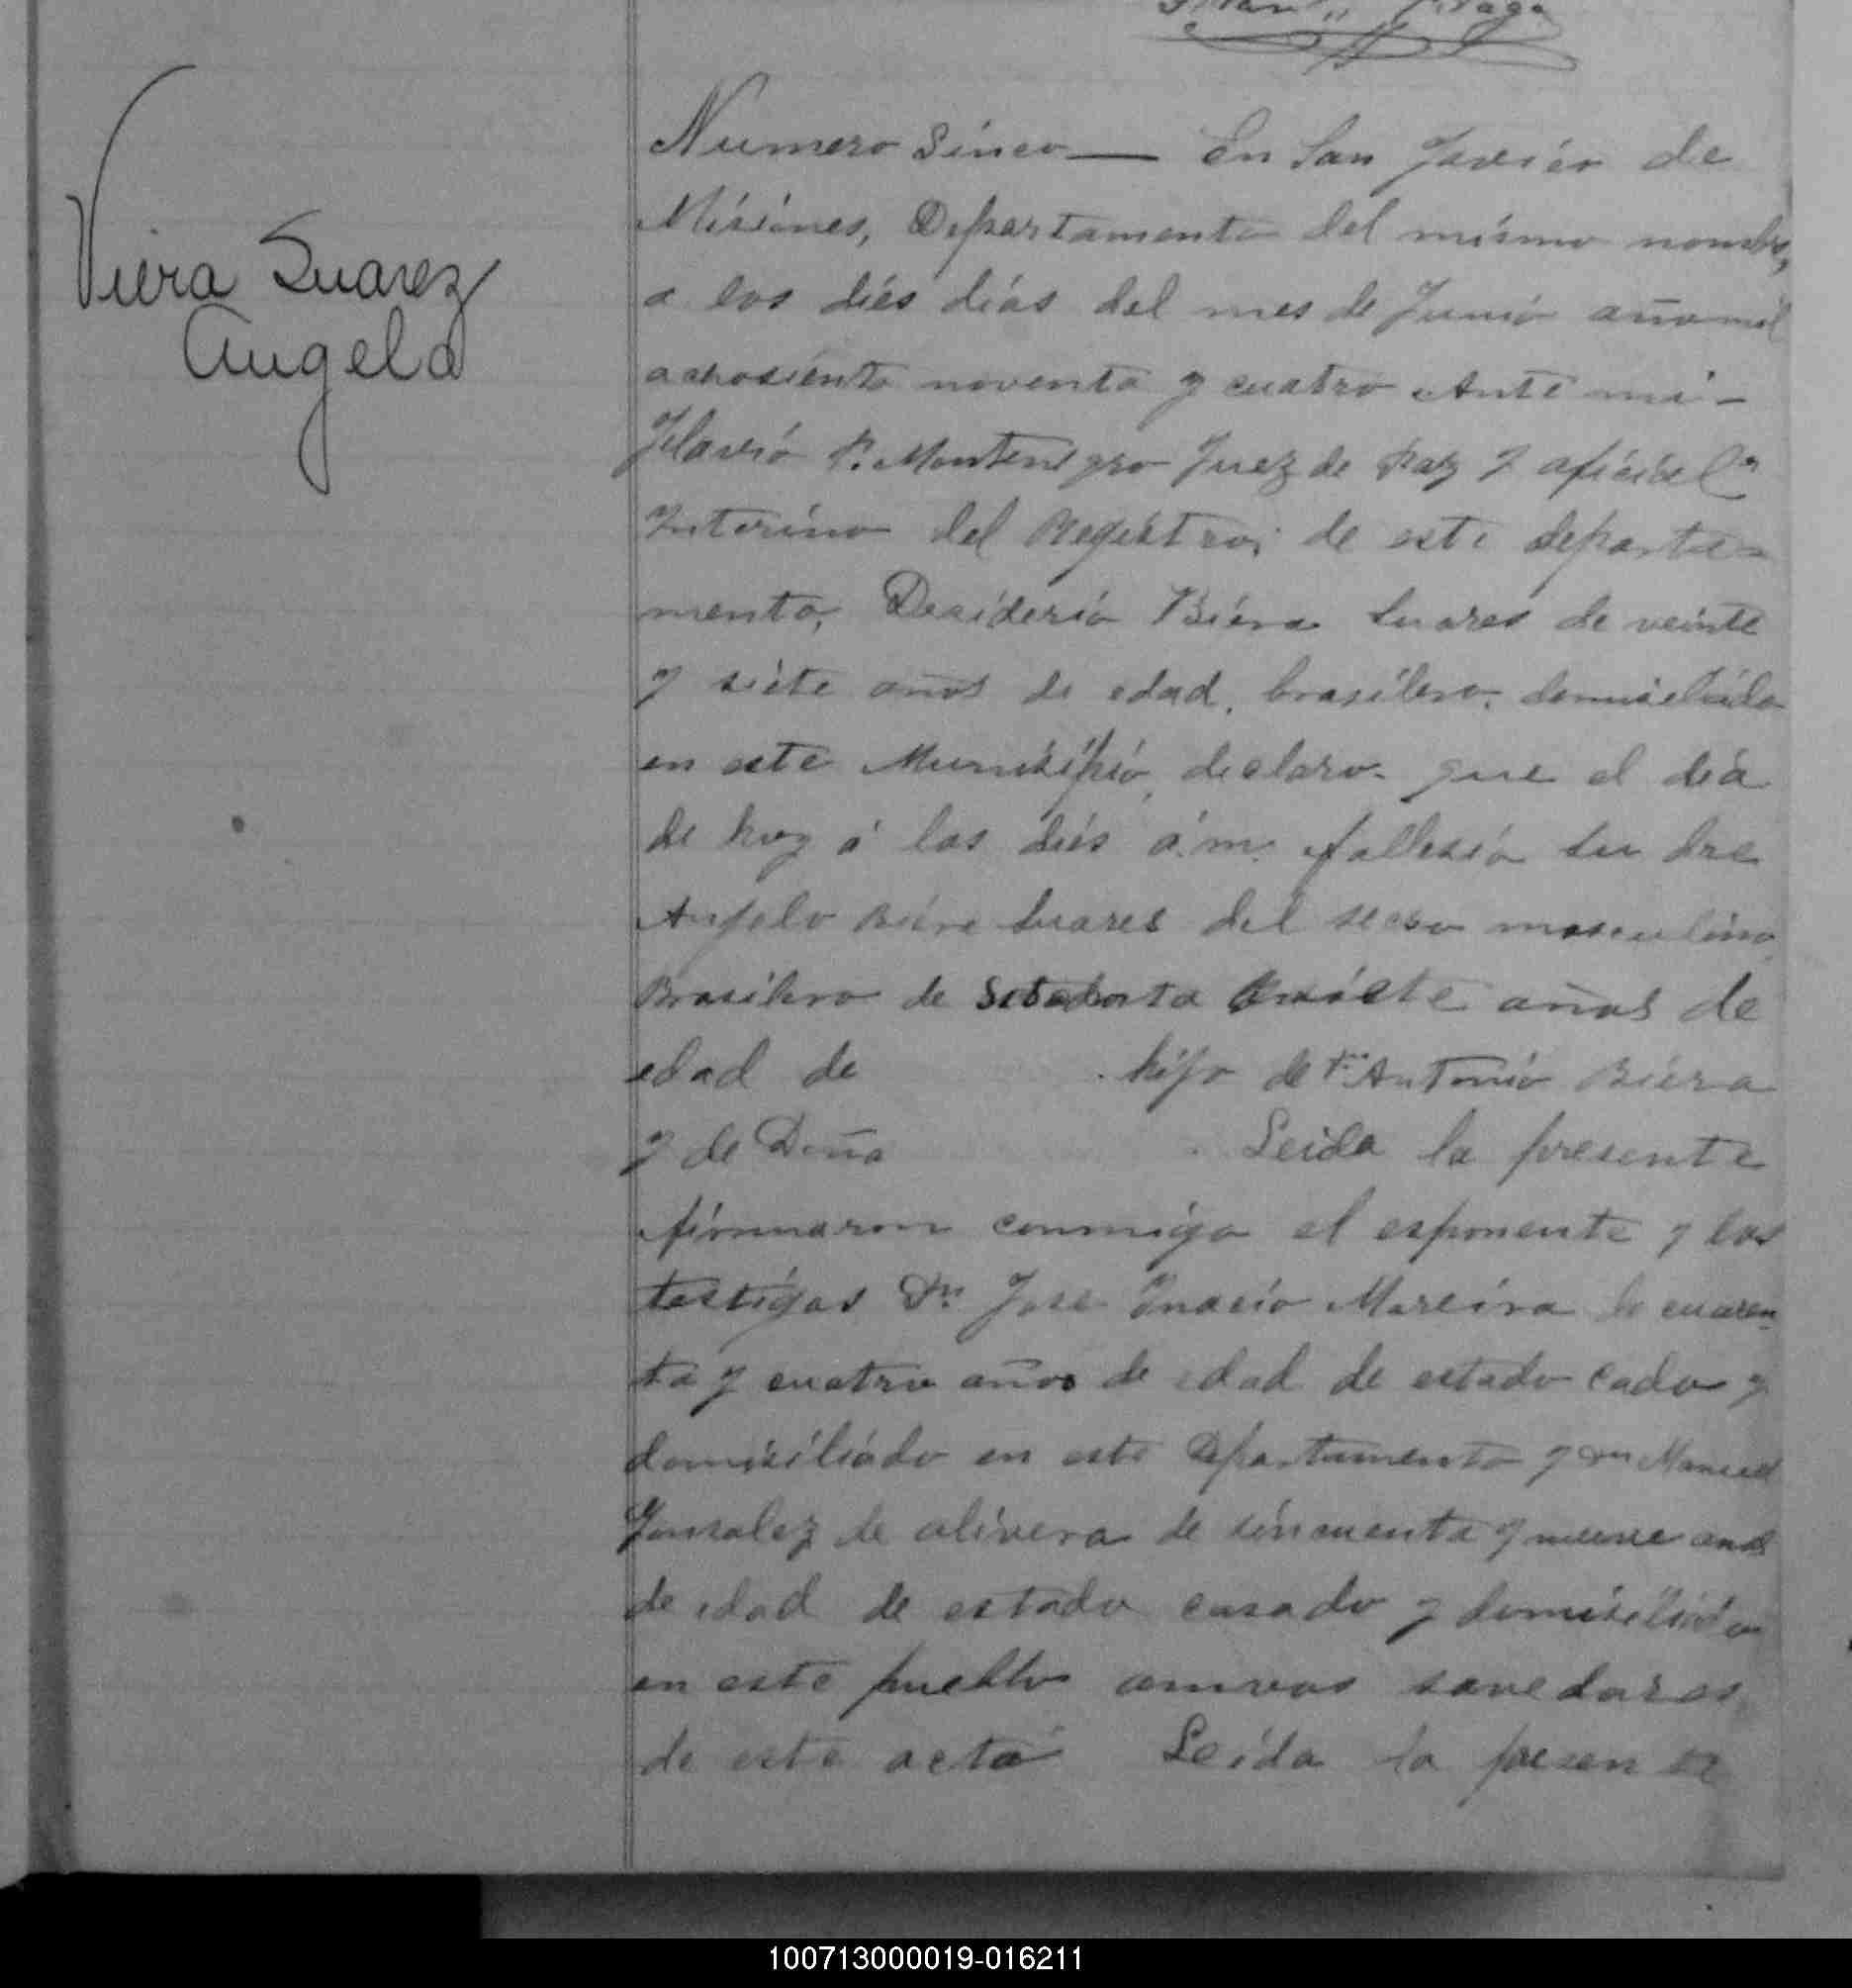 Viera Suarez
Angela
Numero Sinco — En San Javiér de
Misiones, Departamento del mismo nombre,
a los diés dias del mes de Junio año mil
ochosiento noventa y cuatro Ante mi -
Flavio P. Montenegro Juez de Paz y oficial
Interino del Registro, de este departa-
mento, Desiderio Biera Suares de veinte
y siete años de edad, brasilero, domisiliado
en este Munisipio, declaro que el dia
de hoy á las diés a.m. fallesió su
Angelo Biera Suares del secso masculino
Brasilero de siete años de
edad de hijo de Dn Antonio Biera
y de Doña Leida la presente
firmaron conmigo el esponente y los
testigos Dn Jose Inacio Moreira de cuaren-
ta y cuatro años de edad de estado cado y
domisiliado en este Departamento y Dn Manuel
Gonsalez de olivera de sincuenta y nueve anos
de edad de estado casado y domisiliado
en este pueblo amvos savedores
de este acta Leida la presente
100713000019-016211